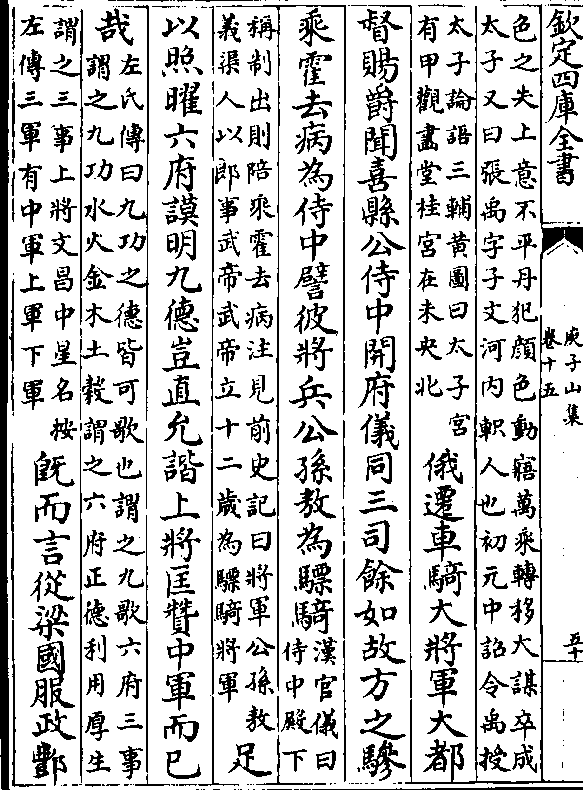 欽定四庫全書
庾子山集
卷十五
五十
色之失上意不平丹犯顔色動寤萬乘轉移大謀卒成
太子又曰張禹字子文河内軹人也初元中詔令禹授
太子論語三輔黄圖曰太子宮
有甲觀畫堂桂宮在未央北
俄遷車騎大將軍大都
督賜爵聞喜縣公侍中開府儀同三司餘如故方之驂
乘霍去病為侍中譬彼將兵公孫敖為驃騎
漢官儀曰
侍中殿下
稱制出則陪乘霍去病注見前史記曰將軍公孫敖
義渠人以郎事武帝武帝立十二歲為驃騎將軍
足
以照曜六府謨明九德豈直允諧上將匡贊中軍而已
哉
左氏傳曰九功之德皆可歌也謂之九歌六府三事
謂之九功水火金木土穀謂之六府正德利用厚生
謂之三事上將文昌中星名按
左傳三軍有中軍上軍下軍
既而言從梁國服政酆